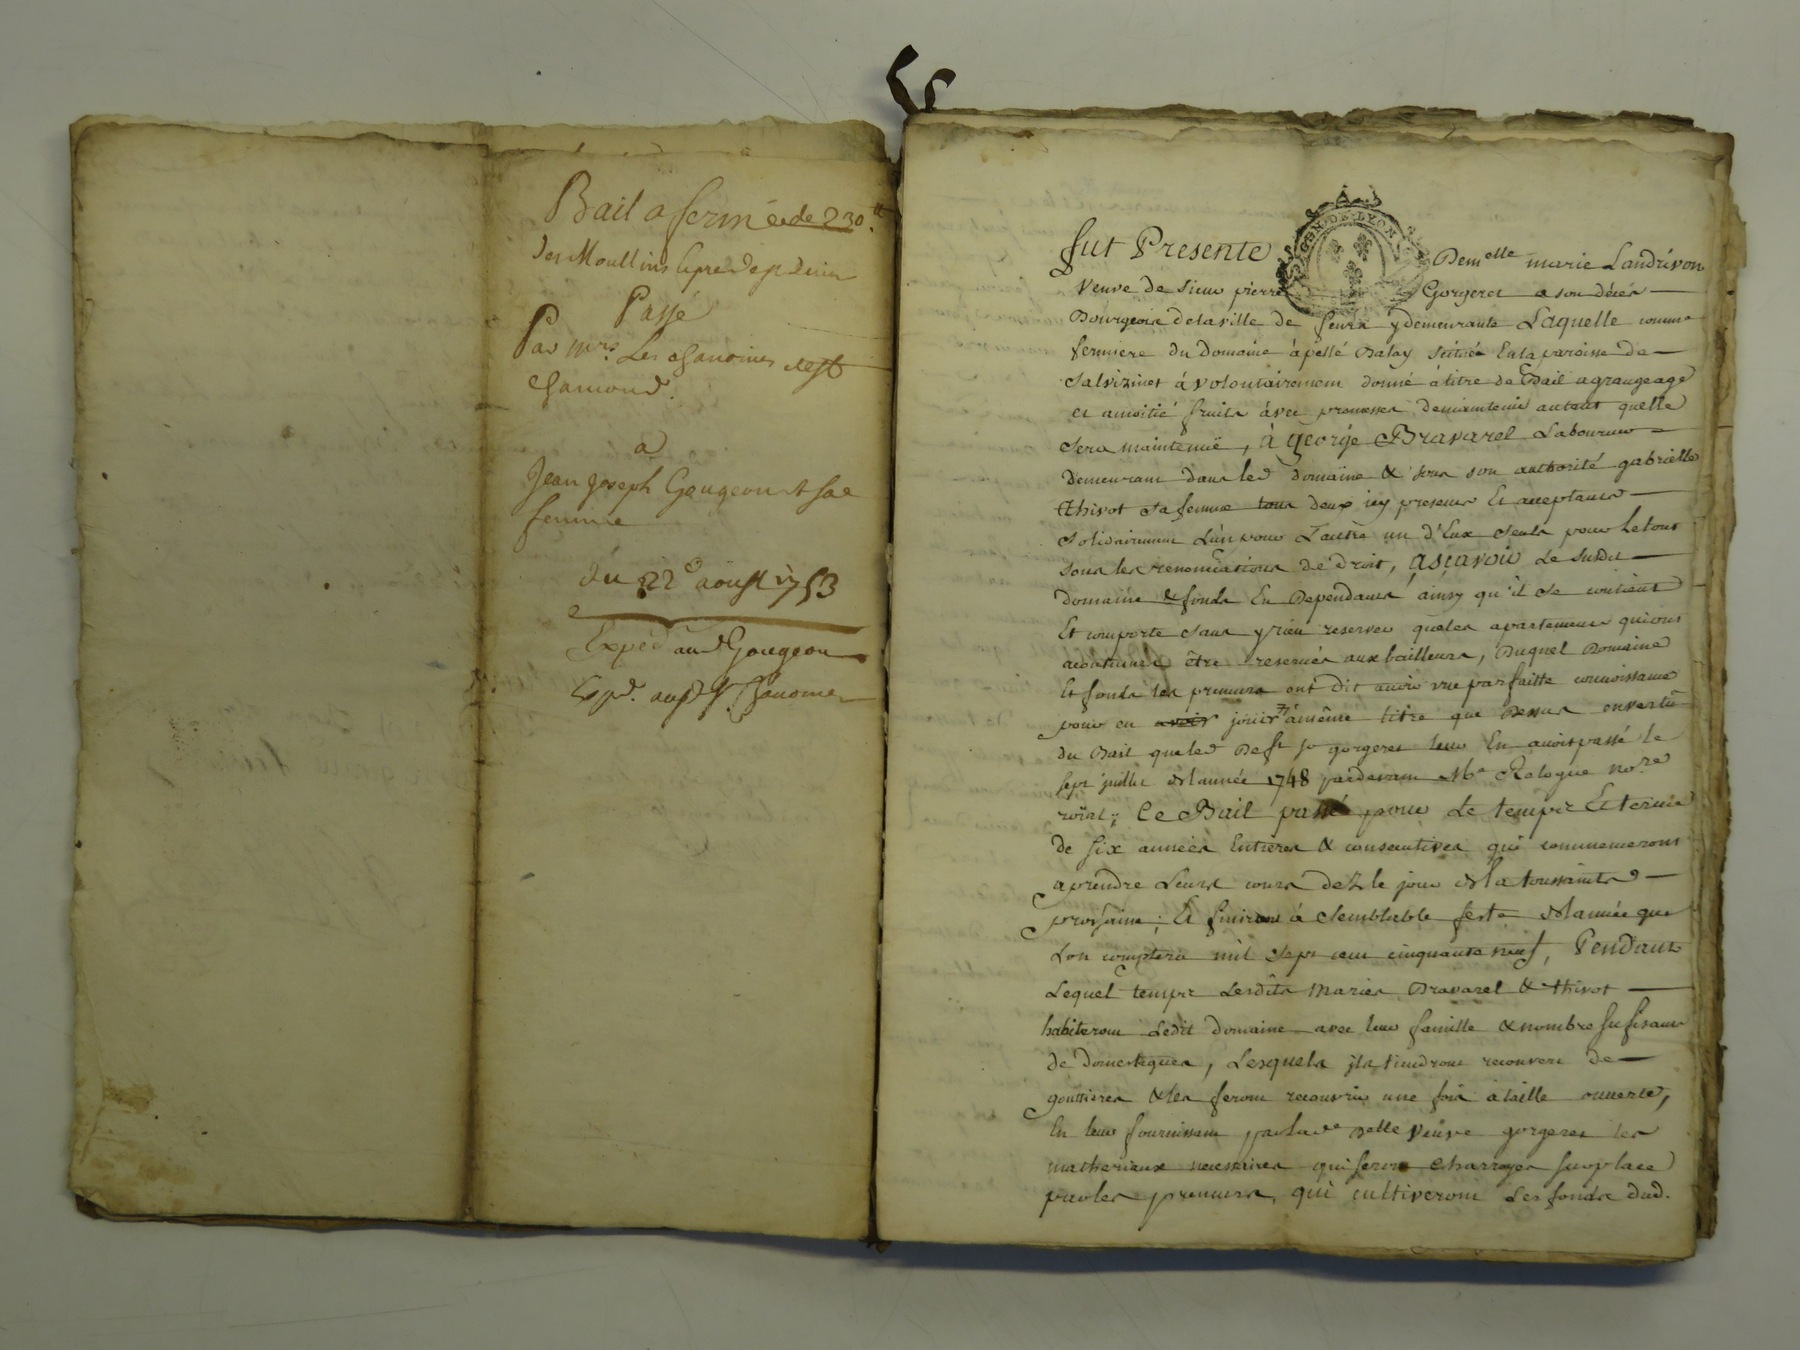 Bail a ferme de 230 ℔.
des Moullins
Passé
Par Mrs. Les chanoines de St
chamond.
a
Jean Joseph Gougeon & sa
femme
du 22e aoust 1753
Expéd aud Gougeon
Expd. auxd Srs Chanoines
fut Presente Demelle marie Landrivon
Veuve de Sieur pierre Gorgeret a son décés
Bourgeois delaville de feurs ydemeurante Laquelle comme
fermiere du Domaine apellé Balay scitüé En la paroisse de
Salvizinet à volontairement donné à titre de Bail agrangeage
et amoitié fruits avec promesses demaintenir autant quelle
sera maintenüe, à george Bravarel Laboureur
demeurant dans led domaine & sous son authorité gabrielle
thivot sa femme tous deux icy presents Et acceptants
solidairement L'un pour L'autre un d'Eux seuls pour Letout
sous les renonciations de droit, ascavoir Le susdit
domaine & fonds En Dependants ainsy qu'il se contient
Et comporte sans yrien reserver queles apartements quiont
acoutumés être reservés aux bailleurs, Duquel Domaine
Et fonds les preneurs ont dit avoir vüe parfaitte connoissance
pour en avoir joüir amême titre que Dessus envertü
du Bail queled Deft Sr gorgeret leur En avoit passé le
sept juillet del'année 1748 pardevant Me Relogue nore
roïal; Ce Bail passé pour Le temps Et terme
de six années Entieres & consecutives qui commenceront
aprendre Leurs cours dez le jour dela toussaints
prochaine; Et finiront à semblable feste del'année que
Lon comptera mil sept cent cinquante neuf, Pendant
Lequel temps Lesdits Mariés Bravarel & thivot
habiteront Ledit domaine avec leur famille & nombre sufisant
de domestiques, Lesquels ils tiendront recouvert de
gouttieres & les feront recouvrir une fois à taille ouverte,
En leur fournissant par lade Delle veuve gorgeret les
matheriaux necessaires qui seront charroyés sur place
par les preneurs, qui cultiveront Les fonds dud.